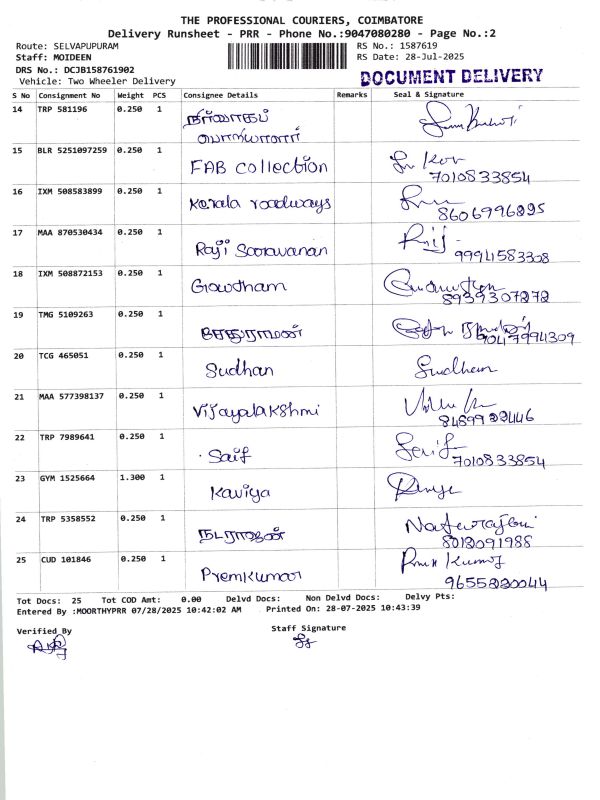 THE PROFESSIONAL COURIERS, COIMBATORE
Delivery Runsheet - PRR - Phone No.:9047080280 - Page No.:2
Route: SELVAPUPURAM RS No.: 1587619
Staff: MOIDEEN RS Date: 28-Jul-2025
DRS No.: DCJB158761902
Vehicle: Two Wheeler Delivery DOCUMENT DELIVERY
S No Consignment No Weight PCS Consignee Details Remarks Seal & Signature
14 TRP 581196 0.250 1 நிர்வாகப்
பொறியாளர்
15 BLR 5251097259 0.250 1 FAB collection
7010833854
16 IXM 508583899 0.250 1 Kerala roadways
8606996895
17 MAA 870530434 0.250 1 Raji Saravanan
9994583308
18 IXM 508872153 0.250 1 Gowtham
8939307272
19 TMG 5109263 0.250 1 சேதுராமன்
9047994309
20 TCG 465051 0.250 1 Sudhan Sudhan
21 MAA 577398137 0.250 1 Vijayalakshmi
8489922446
22 TRP 7989641 0.250 1 Saif
7010833854
23 GYM 1525664 1.300 1 Kaviya
24 TRP 5358552 0.250 1 நடராஜன் Natarajan
8012091988
25 CUD 101846 0.250 1 Premkumar Kumar
9655220044
Tot Docs: 25 Tot COD Amt: 0.00 Delvd Docs: Non Delvd Docs: Delvy Pts:
Entered By :MOORTHYPRR 07/28/2025 10:42:02 AM Printed On: 28-07-2025 10:43:39
Verified By Staff Signature